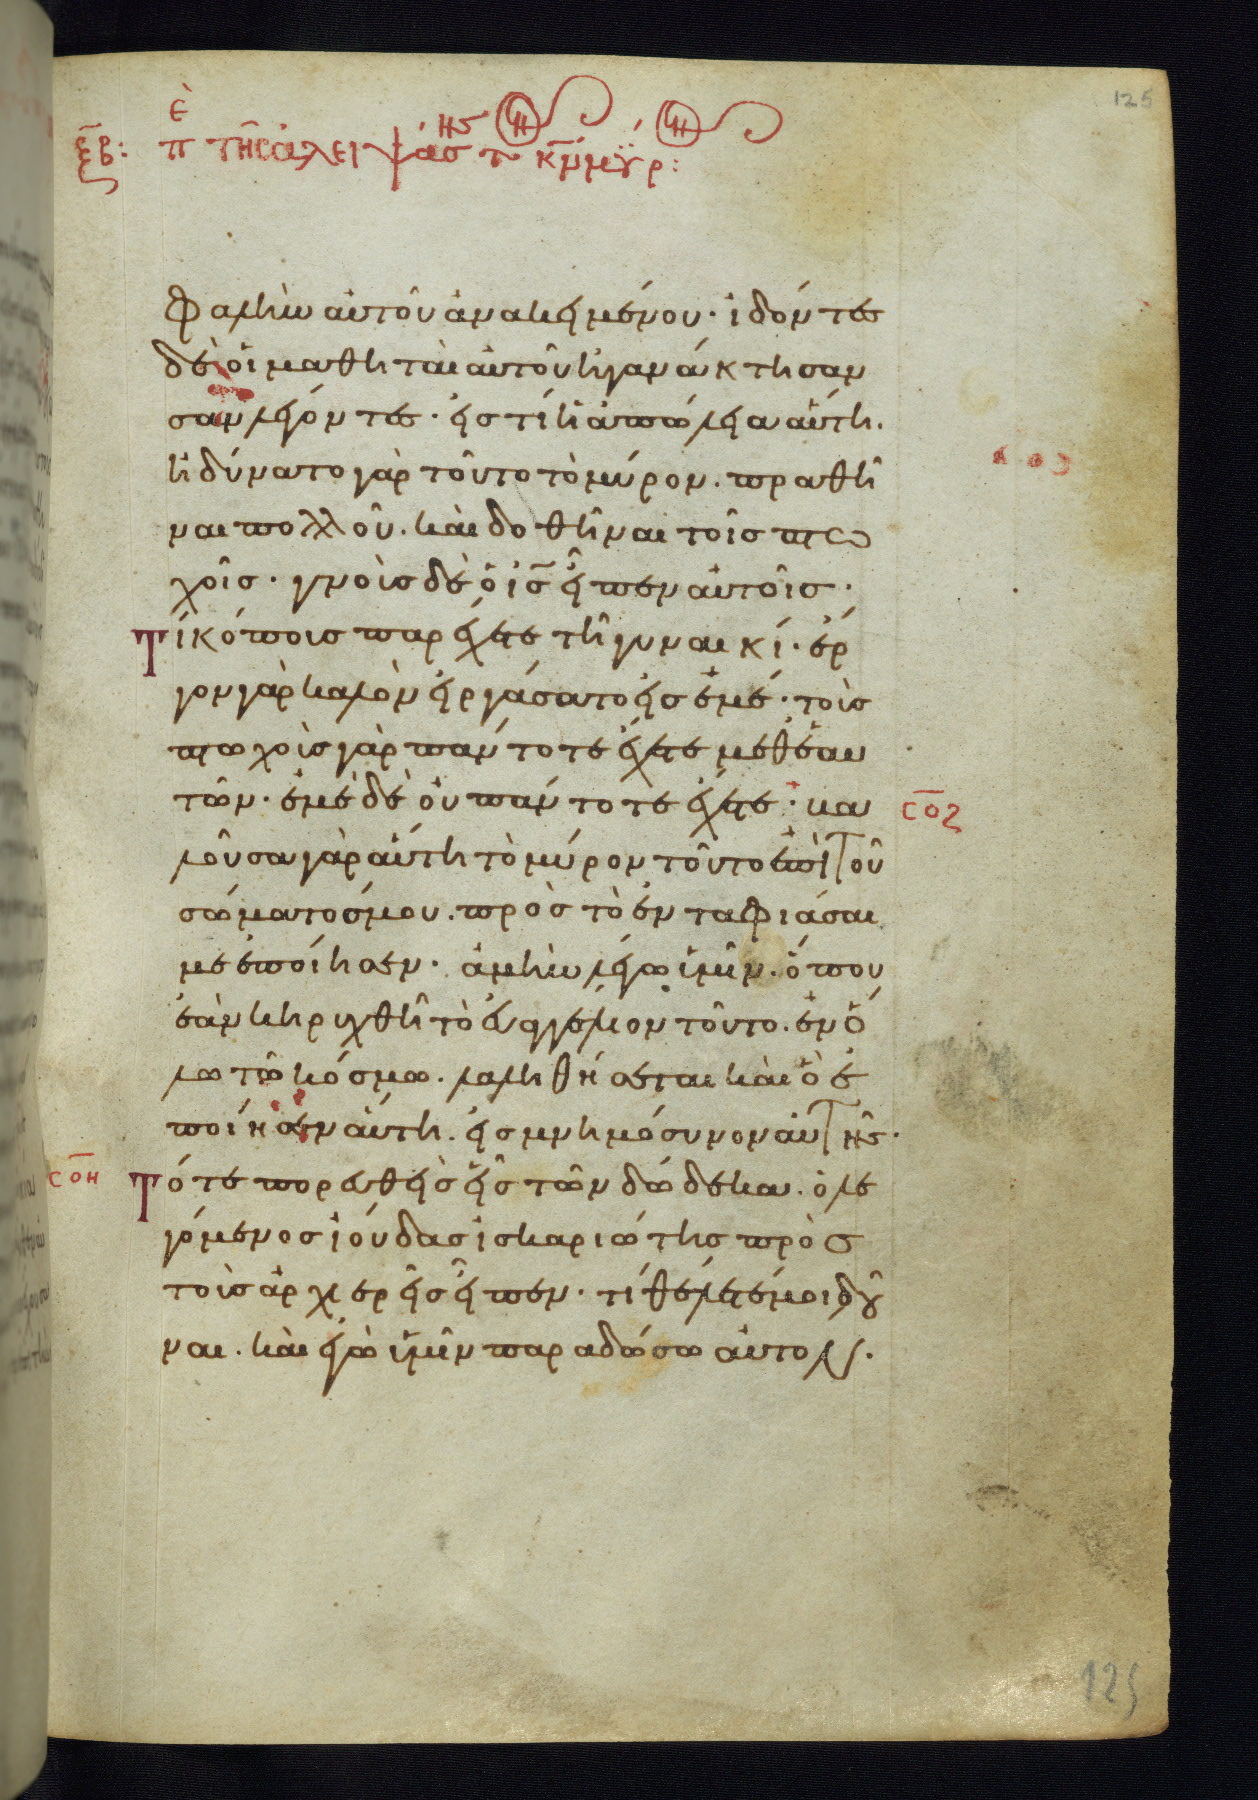 125
ξβ: πε τῆς ἀλειψάσης τ κν μύρ:
φαλὴν αὐτοῦ ἀνακειμένου· ἰδόντες
δὲ οἱ μαθηταὶ αὐτοῦ ἠγανάκτησαν
σαν λέγοντες· εἰς τί ἡ ἀπώλεια αὕτη.
ἠδύνατο γὰρ τοῦτο τὸ μύρον. πραθῆ
ναι πολλοῦ. καὶ δοθῆναι τοῖς πτω
χοῖς· γνοὺς δὲ ὁ ις εἶπεν αὐτοῖς·
Τί κόπους παρέχετε τῇ γυναικί· ἔρ
γον γὰρ καλὸν εἰργάσατο εἰς ἐμέ· τοὺς
πτωχοὺς γὰρ πάντοτε ἔχετε μεθ ἑαυ
τῶν· ἐμὲ δὲ οὐ πάντοτε ἔχετε· βα
σοζ
λοῦσα γὰρ αὕτη τὸ μύρον τοῦτο ἐπὶ τοῦ
σώματος μου. πρὸς τὸ ἐνταφιάσαι
με ἐποίησεν· ἀμὴν λέγω ὑμῖν. ὅπου
ἐὰν κηρυχθῇ τὸ εὐαγγέλιον τοῦτο. ἐν ὅ
λω τῶ κόσμω. λαληθήσεται καὶ ὃ ἐ
ποίησεν αὕτη. εἰς μνημόσυνον αὐτῆς·
σοη
Τότε πορευθεὶς εἷς τῶν δώδεκα. ὁ λε
γόμενος ἰούδας ἰσκαριώτης πρὸς
τοὺς ἀρχιερεῖς εἶπεν· τί θέλετέ μοι δοῦ
ναι. καὶ ἐγὼ ὑμῖν παραδώσω αὐτόν.
125